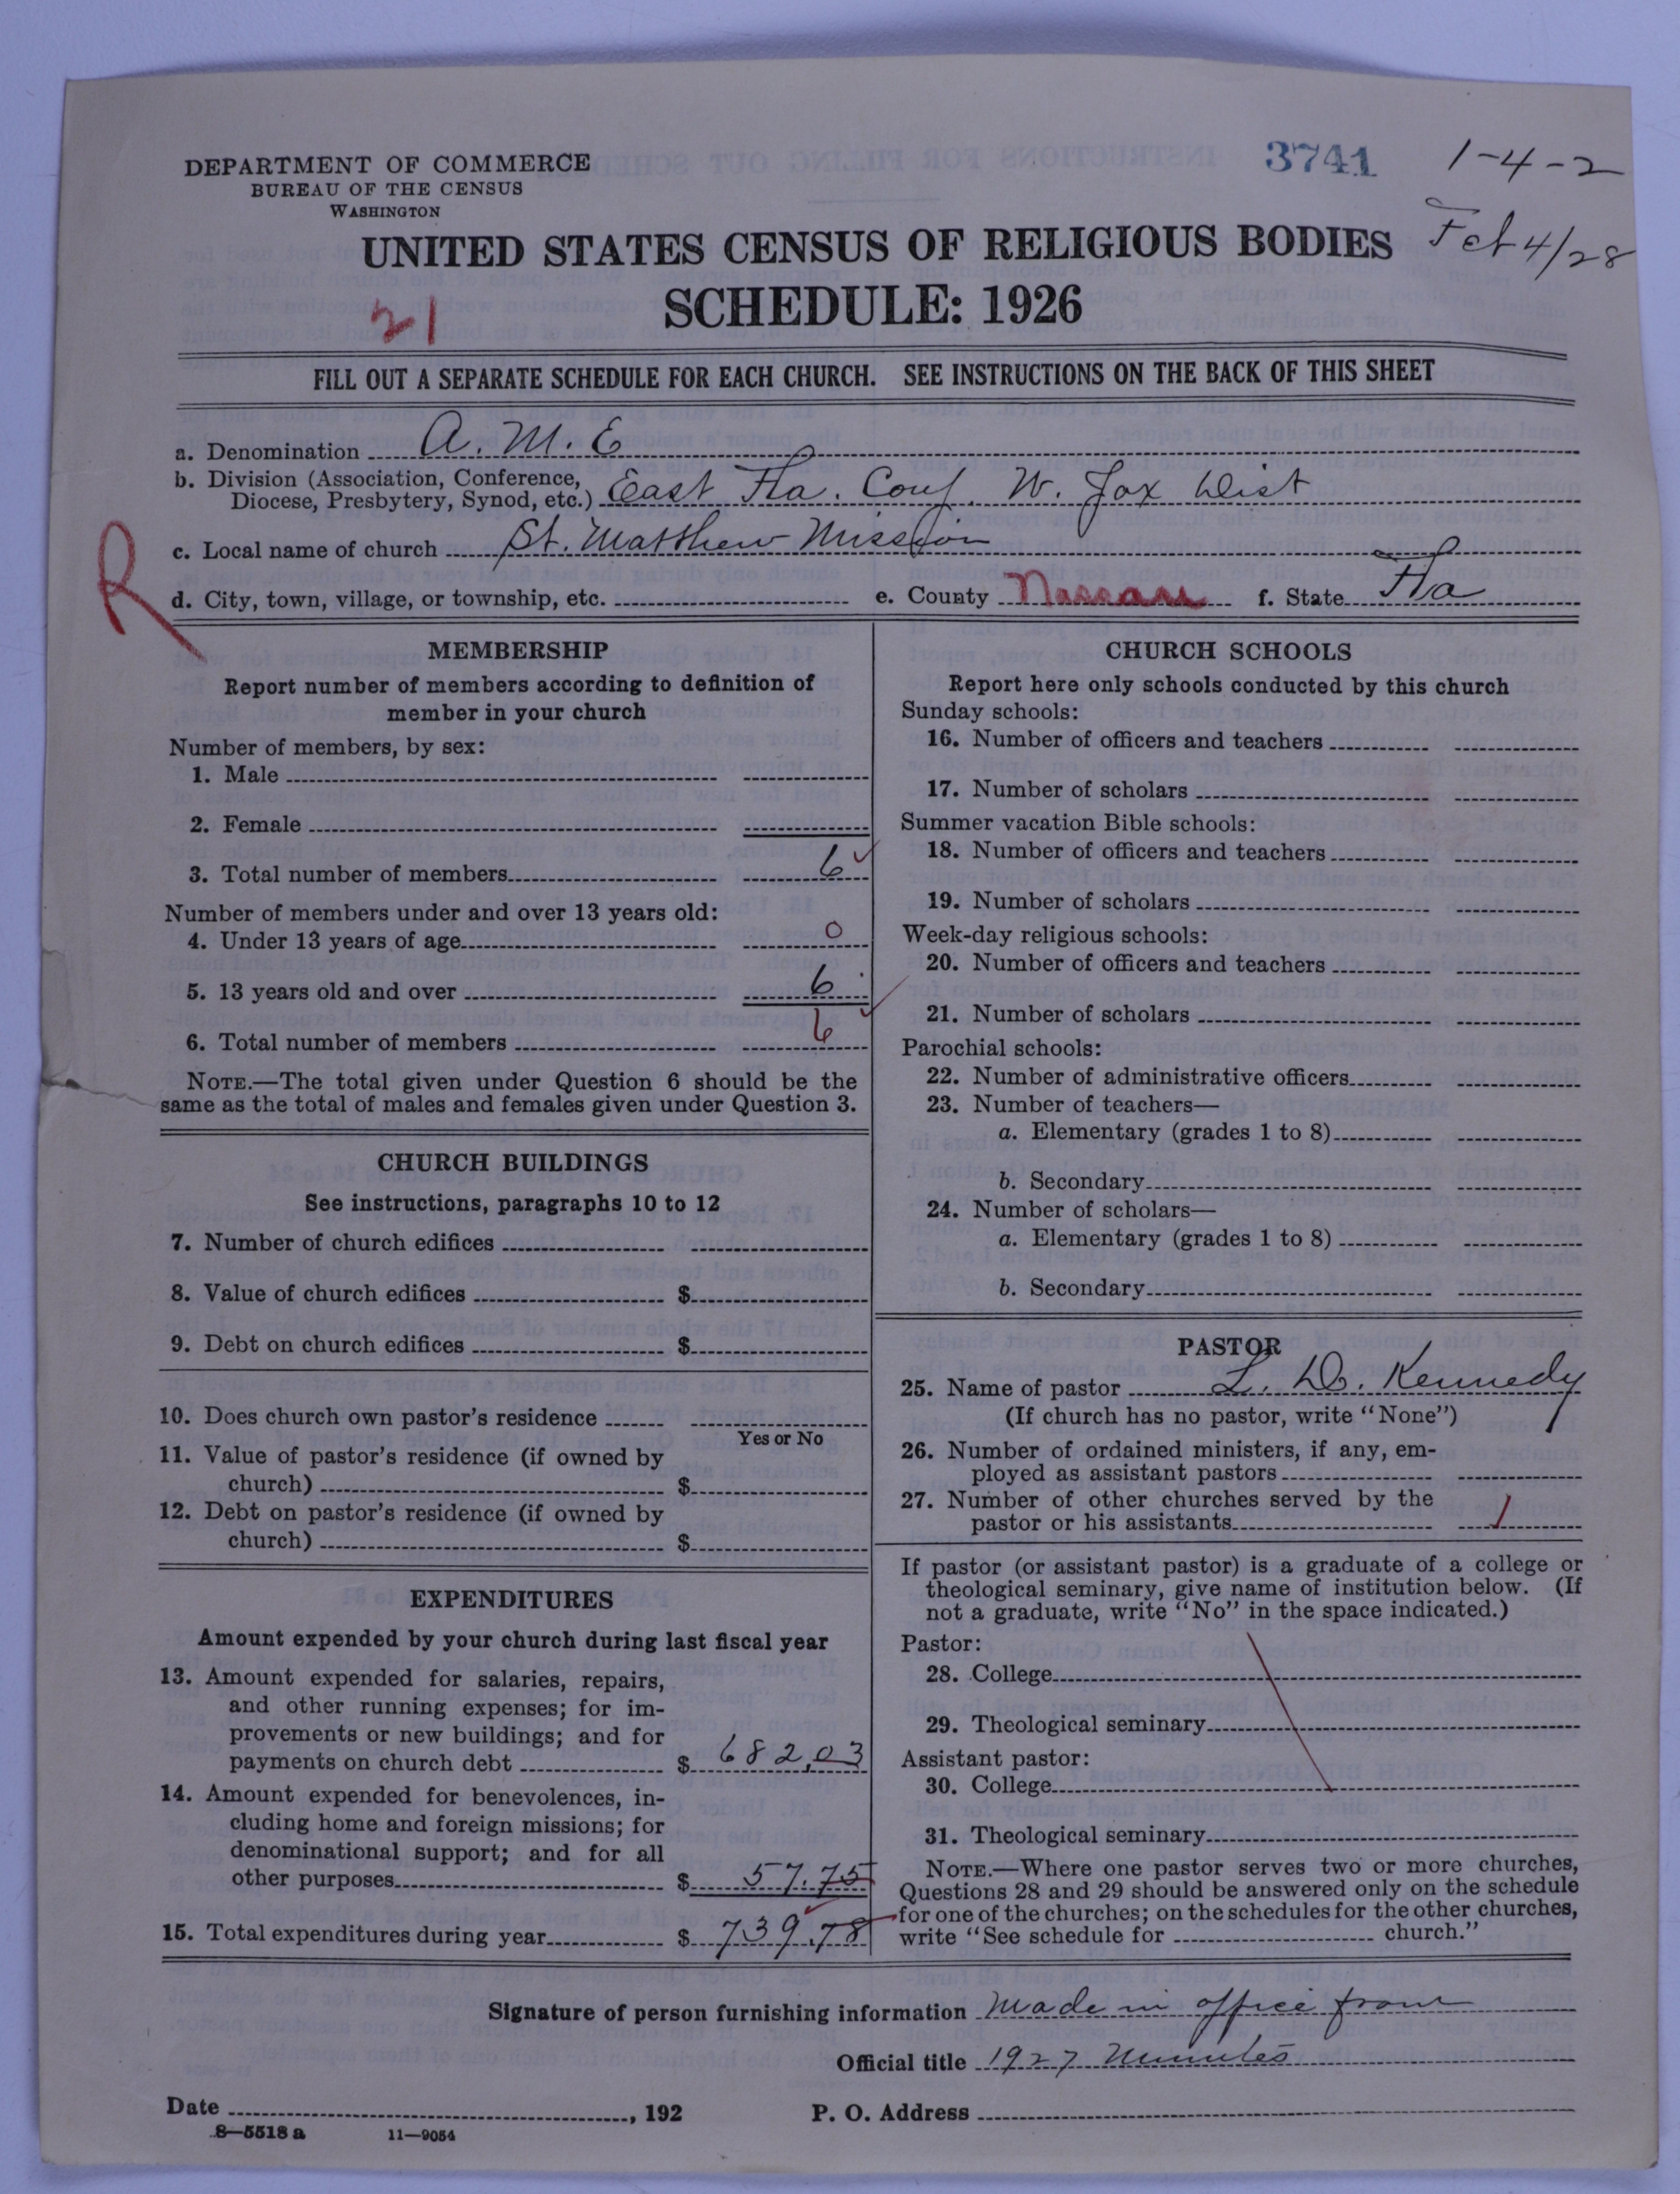 DEPARTMENT OF COMMERCE
BUREAU OF THE CENSUS
WASHINGTON
3741
1-4-2
UNITED STATES CENSUS OF RELIGIOUS BODIES
4/28
SCHEDULE: 1926
21
FILL OUT A SEPARATE SCHEDULE FOR EACH CHURCH. SEE INSTRUCTIONS ON THE BACK OF THIS SHEET
a. Denomination A. M. E
b. Division (Association, Conference,
Diocese, Presbytery, Synod, etc.) East Fla. Conf. W. Jax Dist
R
c. Local name of church St. Matthew Mission
d. City, town, village, or township, etc. e. County Nassau f. State Fla
MEMBERSHIP
Report number of members according to definition of
member in your church
Number of members, by sex:
1. Male
2. Female
3. Total number of members 6
Number of members under and over 13 years old:
4. Under 13 years of age 0
5. 13 years old and over 6
6. Total number of members 6
NOTE.—The total given under Question 6 should be the
same as the total of males and females given under Question 3.
CHURCH BUILDINGS
See instructions, paragraphs 10 to 12
7. Number of church edifices
8. Value of church edifices $
9. Debt on church edifices $
10. Does church own pastor's residence
Yes or No
11. Value of pastor's residence (if owned by
church) $
12. Debt on pastor's residence (if owned by
church) $
EXPENDITURES
Amount expended by your church during last fiscal year
13. Amount expended for salaries, repairs,
and other running expenses; for im-
provements or new buildings; and for
payments on church debt $ 682.03
14. Amount expended for benevolences, in-
cluding home and foreign missions; for
denominational support; and for all
other purposes $ 57.75
15. Total expenditures during year $ 739.78
CHURCH SCHOOLS
Report here only schools conducted by this church
Sunday schools:
16. Number of officers and teachers
17. Number of scholars
Summer vacation Bible schools:
18. Number of officers and teachers
19. Number of scholars
Week-day religious schools:
20. Number of officers and teachers
21. Number of scholars
Parochial schools:
22. Number of administrative officers
23. Number of teachers—
a. Elementary (grades 1 to 8)
b. Secondary
24. Number of scholars—
a. Elementary (grades 1 to 8)
b. Secondary
PASTOR
25. Name of pastor L. D. Kennedy
(If church has no pastor, write "None")
26. Number of ordained ministers, if any, em-
ployed as assistant pastors
27. Number of other churches served by the
pastor or his assistants 1
If pastor (or assistant pastor) is a graduate of a college or
theological seminary, give name of institution below. (If
not a graduate, write "No" in the space indicated.)
Pastor:
28. College
29. Theological seminary
Assistant pastor:
30. College
31. Theological seminary
NOTE.—Where one pastor serves two or more churches,
Questions 28 and 29 should be answered only on the schedule
for one of the churches; on the schedules for the other churches,
write "See schedule for church."
Signature of person furnishing information Made in office from
Official title 1927 Minutes
Date , 192 P. O. Address
8—5518 a 11—9054